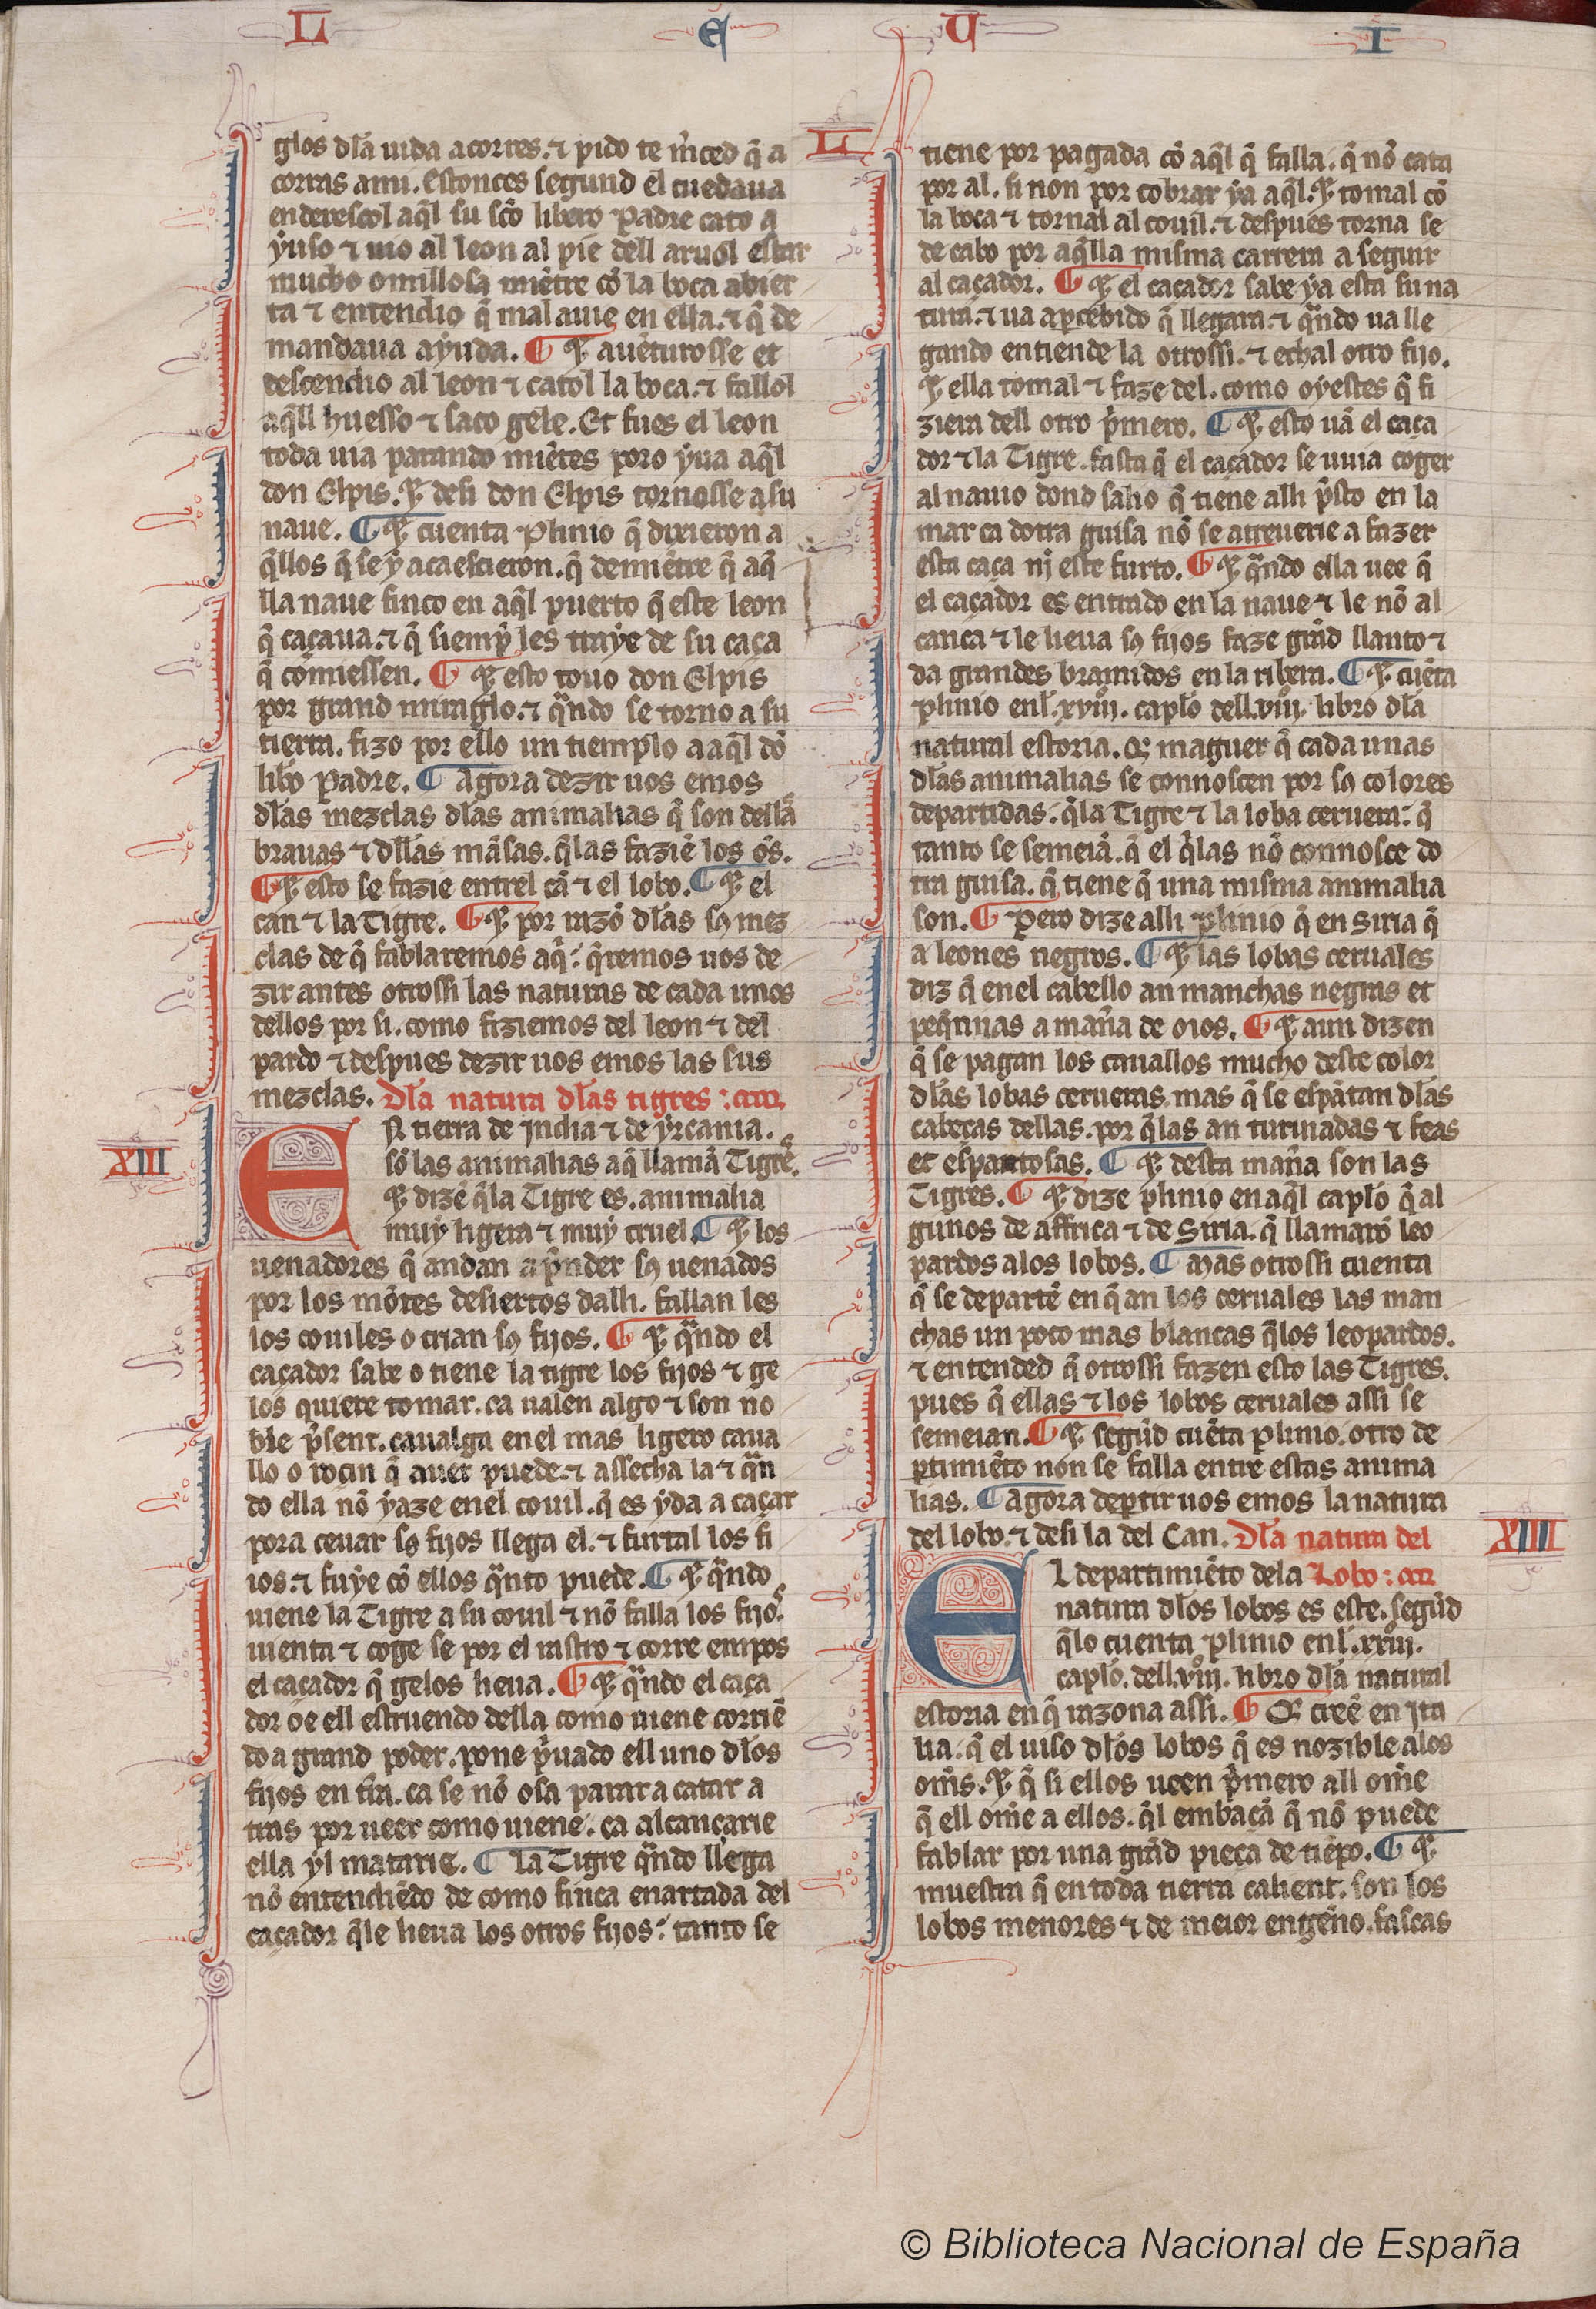 L E U I
glos dla uida acorres. ⁊ pido te mced q̃ a
corras ami. Estonces segund el cuedaua
enderescol aql su sco libero Padre cato a
yuso ⁊ uio al leon al pie dell aruol estar
mucho omillosa miẽtre cõ la boca abier
ta ⁊ entendio q̃ mal auie en ella. ⁊ q̃ de
mandaua ayuda. ¶ Et auẽturosse et
descendio al leon ⁊ catol la boca. ⁊ fallol
aqll huesso ⁊ saco gele. Et fues el leon
toda uia parando miẽtes poro yua aql
don Elpis. Et desi don Elpis tornosse a su
naue. ¶ Et cuenta Plinio q̃ dixieron a
qllos q̃ se y acaescieron. q̃ demiẽtre q̃ aq̃
lla naue finco en aql puerto q̃ este leon
q̃ caçaua. ⁊ q̃ siemp̃ les traye de su caça
q̃ comiessen. ¶ Et esto touo don Elpis
por grand miraglo. ⁊ qndo se torno a su
tierra. fizo por ello un tiemplo a aql dõ
libo Padre. ¶ Agora dezir uos emos
dlas mezclas dlas animalias q̃ son dellã
brauas ⁊ dllas mãsas. qlas faziẽ los os.
¶ Et esto se fazie entrel cã ⁊ el lobo. ¶ Et el
can ⁊ la Tigre. ¶ Et por razõ dlas sus mez
clas de q̃ fablaremos aq̃: q̃remos uos de
zir antes otrossi las naturas de cada unos
dellos por si. como fiziemos del leon ⁊ del
pardo ⁊ despues dezir uos emos las sus
mezclas. Dla natura dlas tigres :
XIII
EN tierra de India ⁊ de yrcania.
sõ las animalias aq̃ llamã Tigres.
Et dizẽ qla Tigre es. animalia
muy ligera ⁊ muy cruel. ¶ Et los
uenadores q̃ andan a p̃nder sus uenados
por los mõtes desiertos dalli. fallan les
los couiles o crian sus fijos. ¶ Et qndo el
caçador sabe o tiene la tigre los fijos ⁊ ge
los quiere tomar. ca ualen algo ⁊ son no
ble p̃sent. caualga en el mas ligero caua
llo o rocin q̃ auer puede. ⁊ assecha la ⁊ qn
do ella nõ yaze en el couil. q̃ es yda a caçar
pora ceuar sus fijos llega el. ⁊ furtal los fi
ios. ⁊ fuye cõ ellos qnto puede. ¶ Et qndo
uiene la Tigre a su couil ⁊ nõ falla los fijos.
uienta ⁊ coge se por el rastro ⁊ corre empos
el caçador q̃ gelos lieua. ¶ Et qndo el caça
dor oe ell estruendo della como uiene corriẽ
do a grand poder. pone p̃uado ell uno dlos
fijos en trra. ca se nõ osa parar a catar a
tras por ueer como uiene. ca alcançarie
ella yl matarie. ¶ La Tigre qndo llega
nõ entendiẽdo de como finca enartada del
caçador qle lieua los otros fijos: tanto se
L
tiene por pagada cõ aql q̃ falla. q̃ nõ cata
por al. si non por cobrar ya aql. Et tomal cõ
la boca ⁊ tornal al couil. ⁊ despues torna se
de cabo por aqlla misma carrera a seguir
al caçador. ¶ Et el caçador sabe ya esta su na
tura. ⁊ ua apcebido q̃ llegara. ⁊ qndo ua lle
gando entiende la otrossi. ⁊ echal otro fijo.
Et ella tomal ⁊ faze del. como oyestes q̃ fi
ziera dell otro p̃mero. ¶ Et esto uã el caça
dor ⁊ la Tigre. fasta q̃ el caçador se uuia coger
al nauio dond salio q̃ tiene alli p̃sto en la
mar ca dotra guisa nõ se atreuerie a fazer
esta caça nj este furto. ¶ Et qndo ella uee q̃
el caçador es entrado en la naue ⁊ le nõ al
cança ⁊ le lieua sus fijos faze grãd llanto ⁊
da grandes bramidos en la ribera. ¶ Et cuẽta
Plinio enl. xviij. caplo dell. viij. libro dla
natural estoria. Q; maguer q̃ cada unas
dlas animalias se connoscen por sus colores
departidas. qla Tigre ⁊ la loba ceruera: q̃
tanto se semeiã. q̃ el qlas nõ connosce do
tra guisa. q̃ tiene q̃ una misma animalia
son. ¶ Pero dize alli Plinio q̃ en Siria q̃
a leones negros. ¶ Et las lobas ceruales
diz q̃ en el cabello an manchas negras et
peqnnas a mana de oios. ¶ Et aun dizen
q̃ se pagan los cauallos mucho deste color
dlas lobas cerueras. mas q̃ se espãtan dlas
cabeças dellas. por qlas an turuiadas ⁊ feas
et espantosas. ¶ Et desta mana son las
Tigres. ¶ Et dize plinio en aql caplo q̃ al
gunos de affrica ⁊ de Siria. q̃ llamarõ leo
pardos alos lobos. ¶ Mas otrossi cuenta
q̃ se departẽ en q̃ an los ceruales las man
chas un poco mas blancas qlos leopardos.
⁊ entended q̃ otrossi fazen esto las Tigres.
pues q̃ ellas ⁊ los lobos ceruales assi se
semeian. ¶ Et segũd cuẽta plinio. otro de
ptimiẽto non se falla entre estas anima
lias. ¶ Agora deptir uos emos la natura
del lobo. ⁊ desi la del Can. Dla natura del
XIIII
EL departimiẽto dela Lobo :
natura dlos lobos es este. segũd
qlo cuenta Plinio enl. xxiij.
caplo. dell. viij. libro dla natural
estoria en q̃ razona assi. ¶ Q; creẽ en Ita
lia. q̃ el uiso dlos lobos q̃ es nozible alos
oms. Et q̃ si ellos ueen p̃mero all ome
q̃ ell ome a ellos. ql embaçã q̃ nõ puede
fablar por una grãd pieça de tiẽpo. ¶ Et
muestra q̃ en toda tierra calient. son los
lobos menores ⁊ de meior engeño. fascas
© Biblioteca Nacional de España